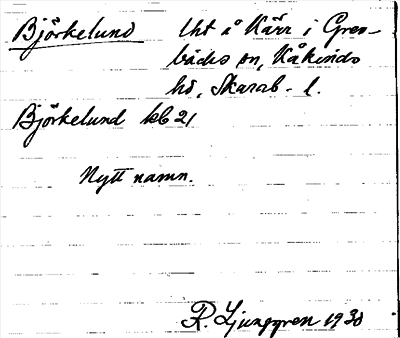 Björkelund Uht å Kärr i Gres-
bäcks sn, Kåkinds
hd, Skarab. l.
Björkelund kb 21
Nytt namn.
R. Ljunggren 1930